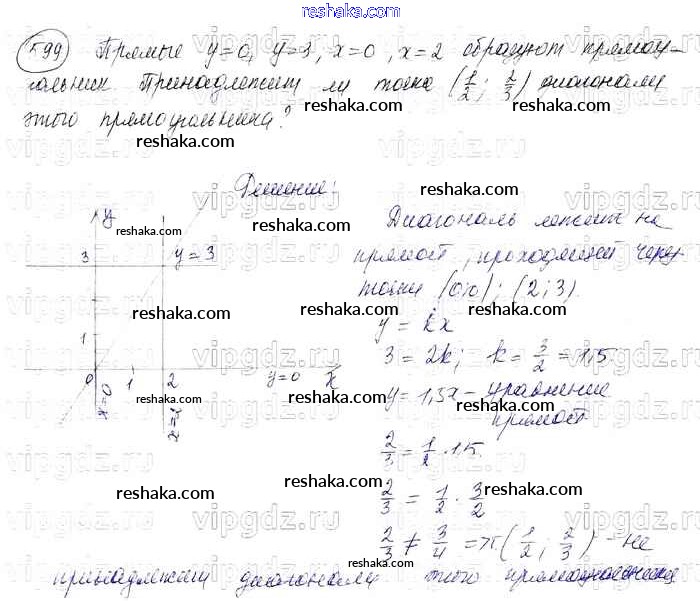 reshaka.com
599 Прямые y=0, y=3, x=0, x=2 образуют прямоу-
гольник. Принадлежит ли точка (1/2; 2/3) диагонали
reshaka.com reshaka.com
этого прямоугольника?
reshaka.com
vipgdz.ru vipgdz.ru vipgdz.ru
Решение:
reshaka.com
y
reshaka.com
Диагональ лежит на
3 y=3
прямой, проходящей через
reshaka.com
точки (0;0); (2;3).
reshaka.com
y = kx
1
3 = 2k; k = 3/2 = 1,5
0 1 2 y=0 x
x=0
y = 1,5x - уравнение
прямой
reshaka.com reshaka.com
2/3 = 1/2 · 1,5
reshaka.com
2/3 = 1/2 · 3/2
reshaka.com reshaka.com
vipgdz.ru vipgdz.ru vipgdz.ru
2/3 ≠ 3/4 => (1/2; 2/3) - не
reshaka.com
принадлежит диагонали этого прямоугольника
reshaka.com